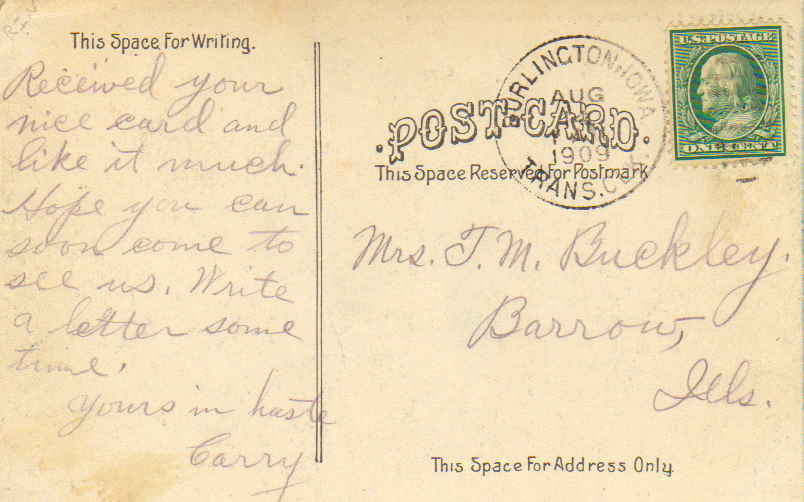 This Space For Writing.
Received your
nice card and
like it much.
Hope you can
soon come to
see us. Write
a letter some
time.
Yours in haste
Carry
POST-CARD.
This Space Reserved for Postmark
BURLINGTON, IOWA
AUG
1909
TRANS. CLK.
U.S. POSTAGE
ONE CENT
Mrs. T. M. Buckley.
Barrow,
Ills.
This Space For Address Only.